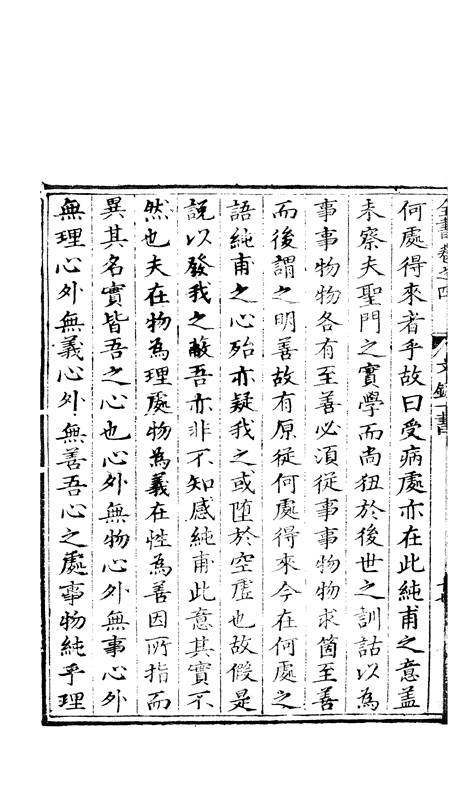 全書卷之四 文錄一書
何處得來者乎故曰受病處亦在此純甫之意蓋
未察夫聖門之實學而尚狃於後世之訓詁以為
事事物物各有至善必湏從事事物物求箇至善
而後謂之明善故有原從何處得來今在何處之
語純甫之心殆亦疑我之或堕於空虛也故假是
說以發我之蔽吾亦非不知感純甫此意其實不
然也夫在物為理處物為義在性為善因所指而
異其名實皆吾之心也心外無物心外無事心外
無理心外無義心外無善吾心之處事物純乎理